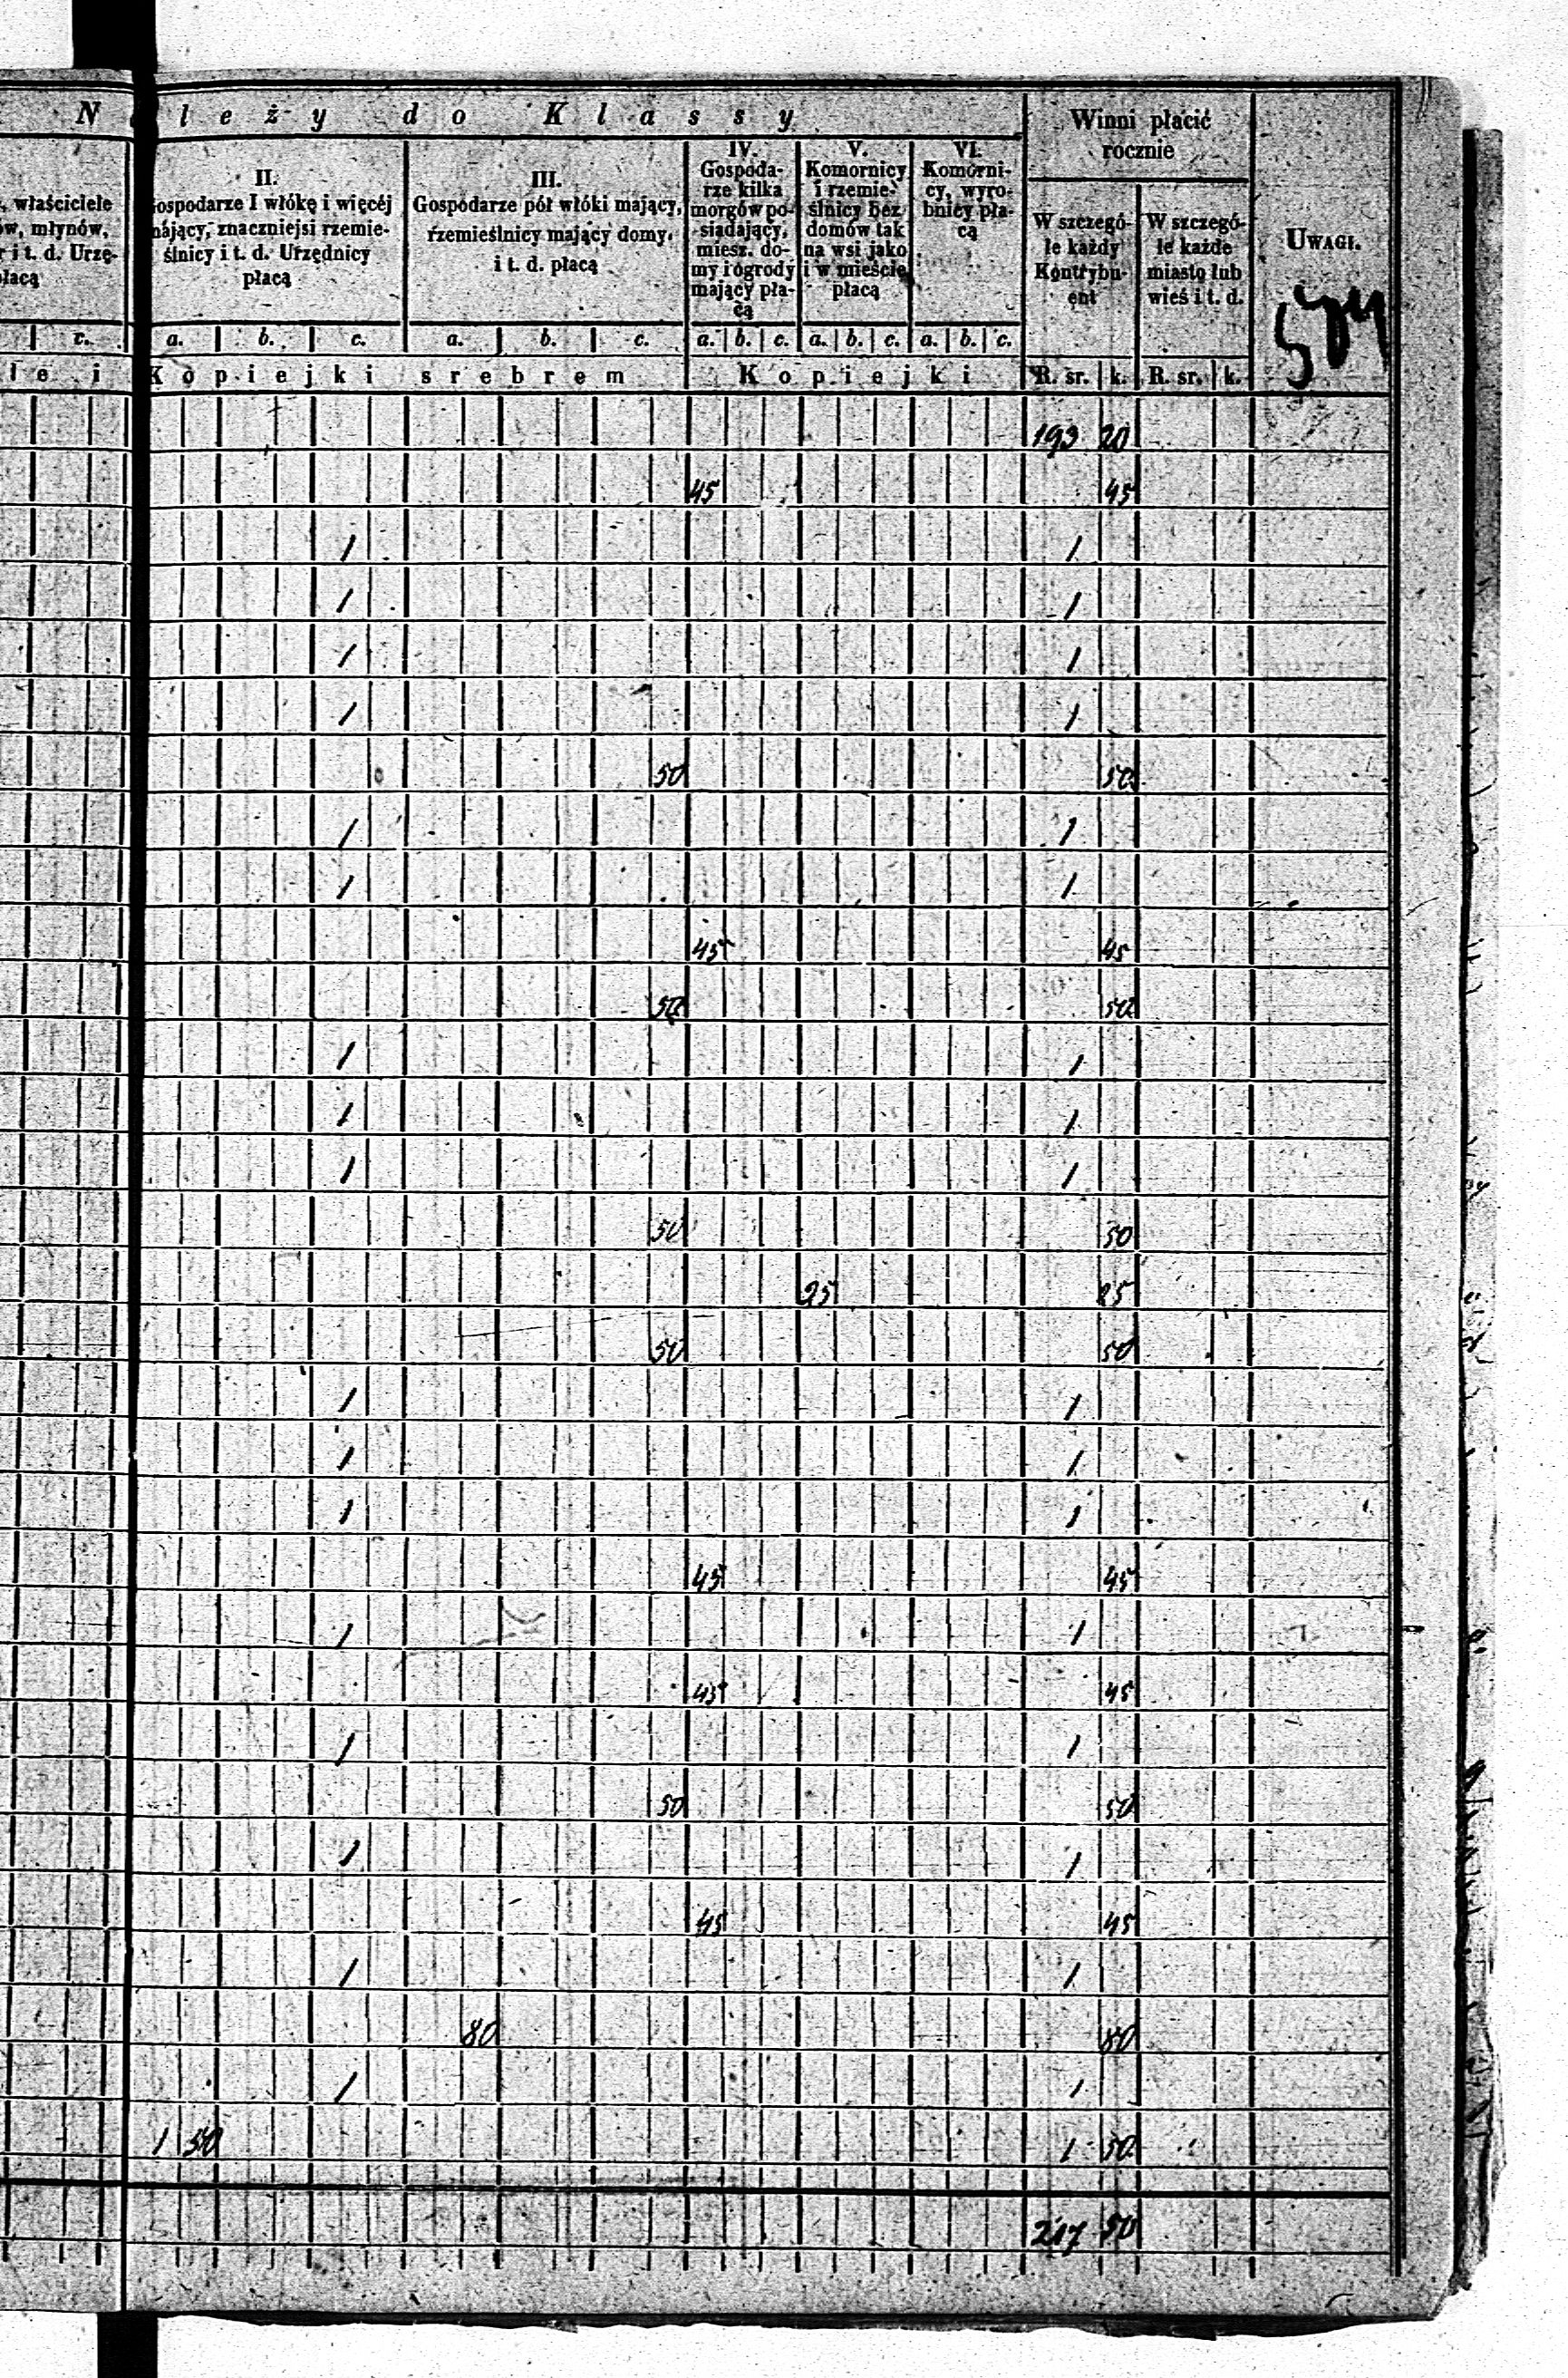 N leży do Klassy
Winni płacić rocznie
UWAGI.
, właściciele
ów, młynów,
r i t. d. Urzę-
płacą
II.
Gospodarze I włókę i więcéj
mający, znaczniejsi rzemie-
ślnicy i t. d. Urzędnicy
płacą
III.
Gospodarze pół włóki mający,
rzemieślnicy mający domy,
i t. d. płacą
IV.
Gospoda-
rze kilka
morgów po-
siadający,
miesz. do-
my i ogrody
mający pła-
cą
V.
Komornicy
i rzemie-
ślnicy bez
domów tak
na wsi jako
i w mieście
płacą
VI.
Komorni-
cy, wyro-
bnicy pła-
cą
W szczegó-
le każdy
Kontrybu-
ent
W szczegó-
le każde
miasto lub
wieś i t. d.
c. a. b. c. a. b. c. a. b. c. a. b. c. a. b. c.
le i Kopiejki srebrem Kopiejki R. sr. k. R. sr. k.
193 20
45 45
1 1
1 1
1 1
1 1
50 50
1 1
1 1
45 45
50 50
1 1
1 1
1 1
50 50
25 25
50 50
1 1
1 1
1 1
45 45
1 1
45 45
1 1
50 50
1 1
45 45
1 1
80 80
1 1
1 50 1 50
217 50